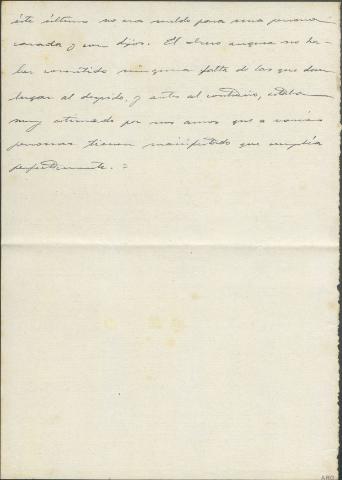 éste último no era sueldo para una persona
casada y con hijos. El obrero asegura no ha-
ber cometido ninguna falta de las que dan
lugar al despido, y antes al contrario, estaba
muy estimado por sus amos que a varias
personas tienen manifestado que cumplía
perfectamente. =
ARO